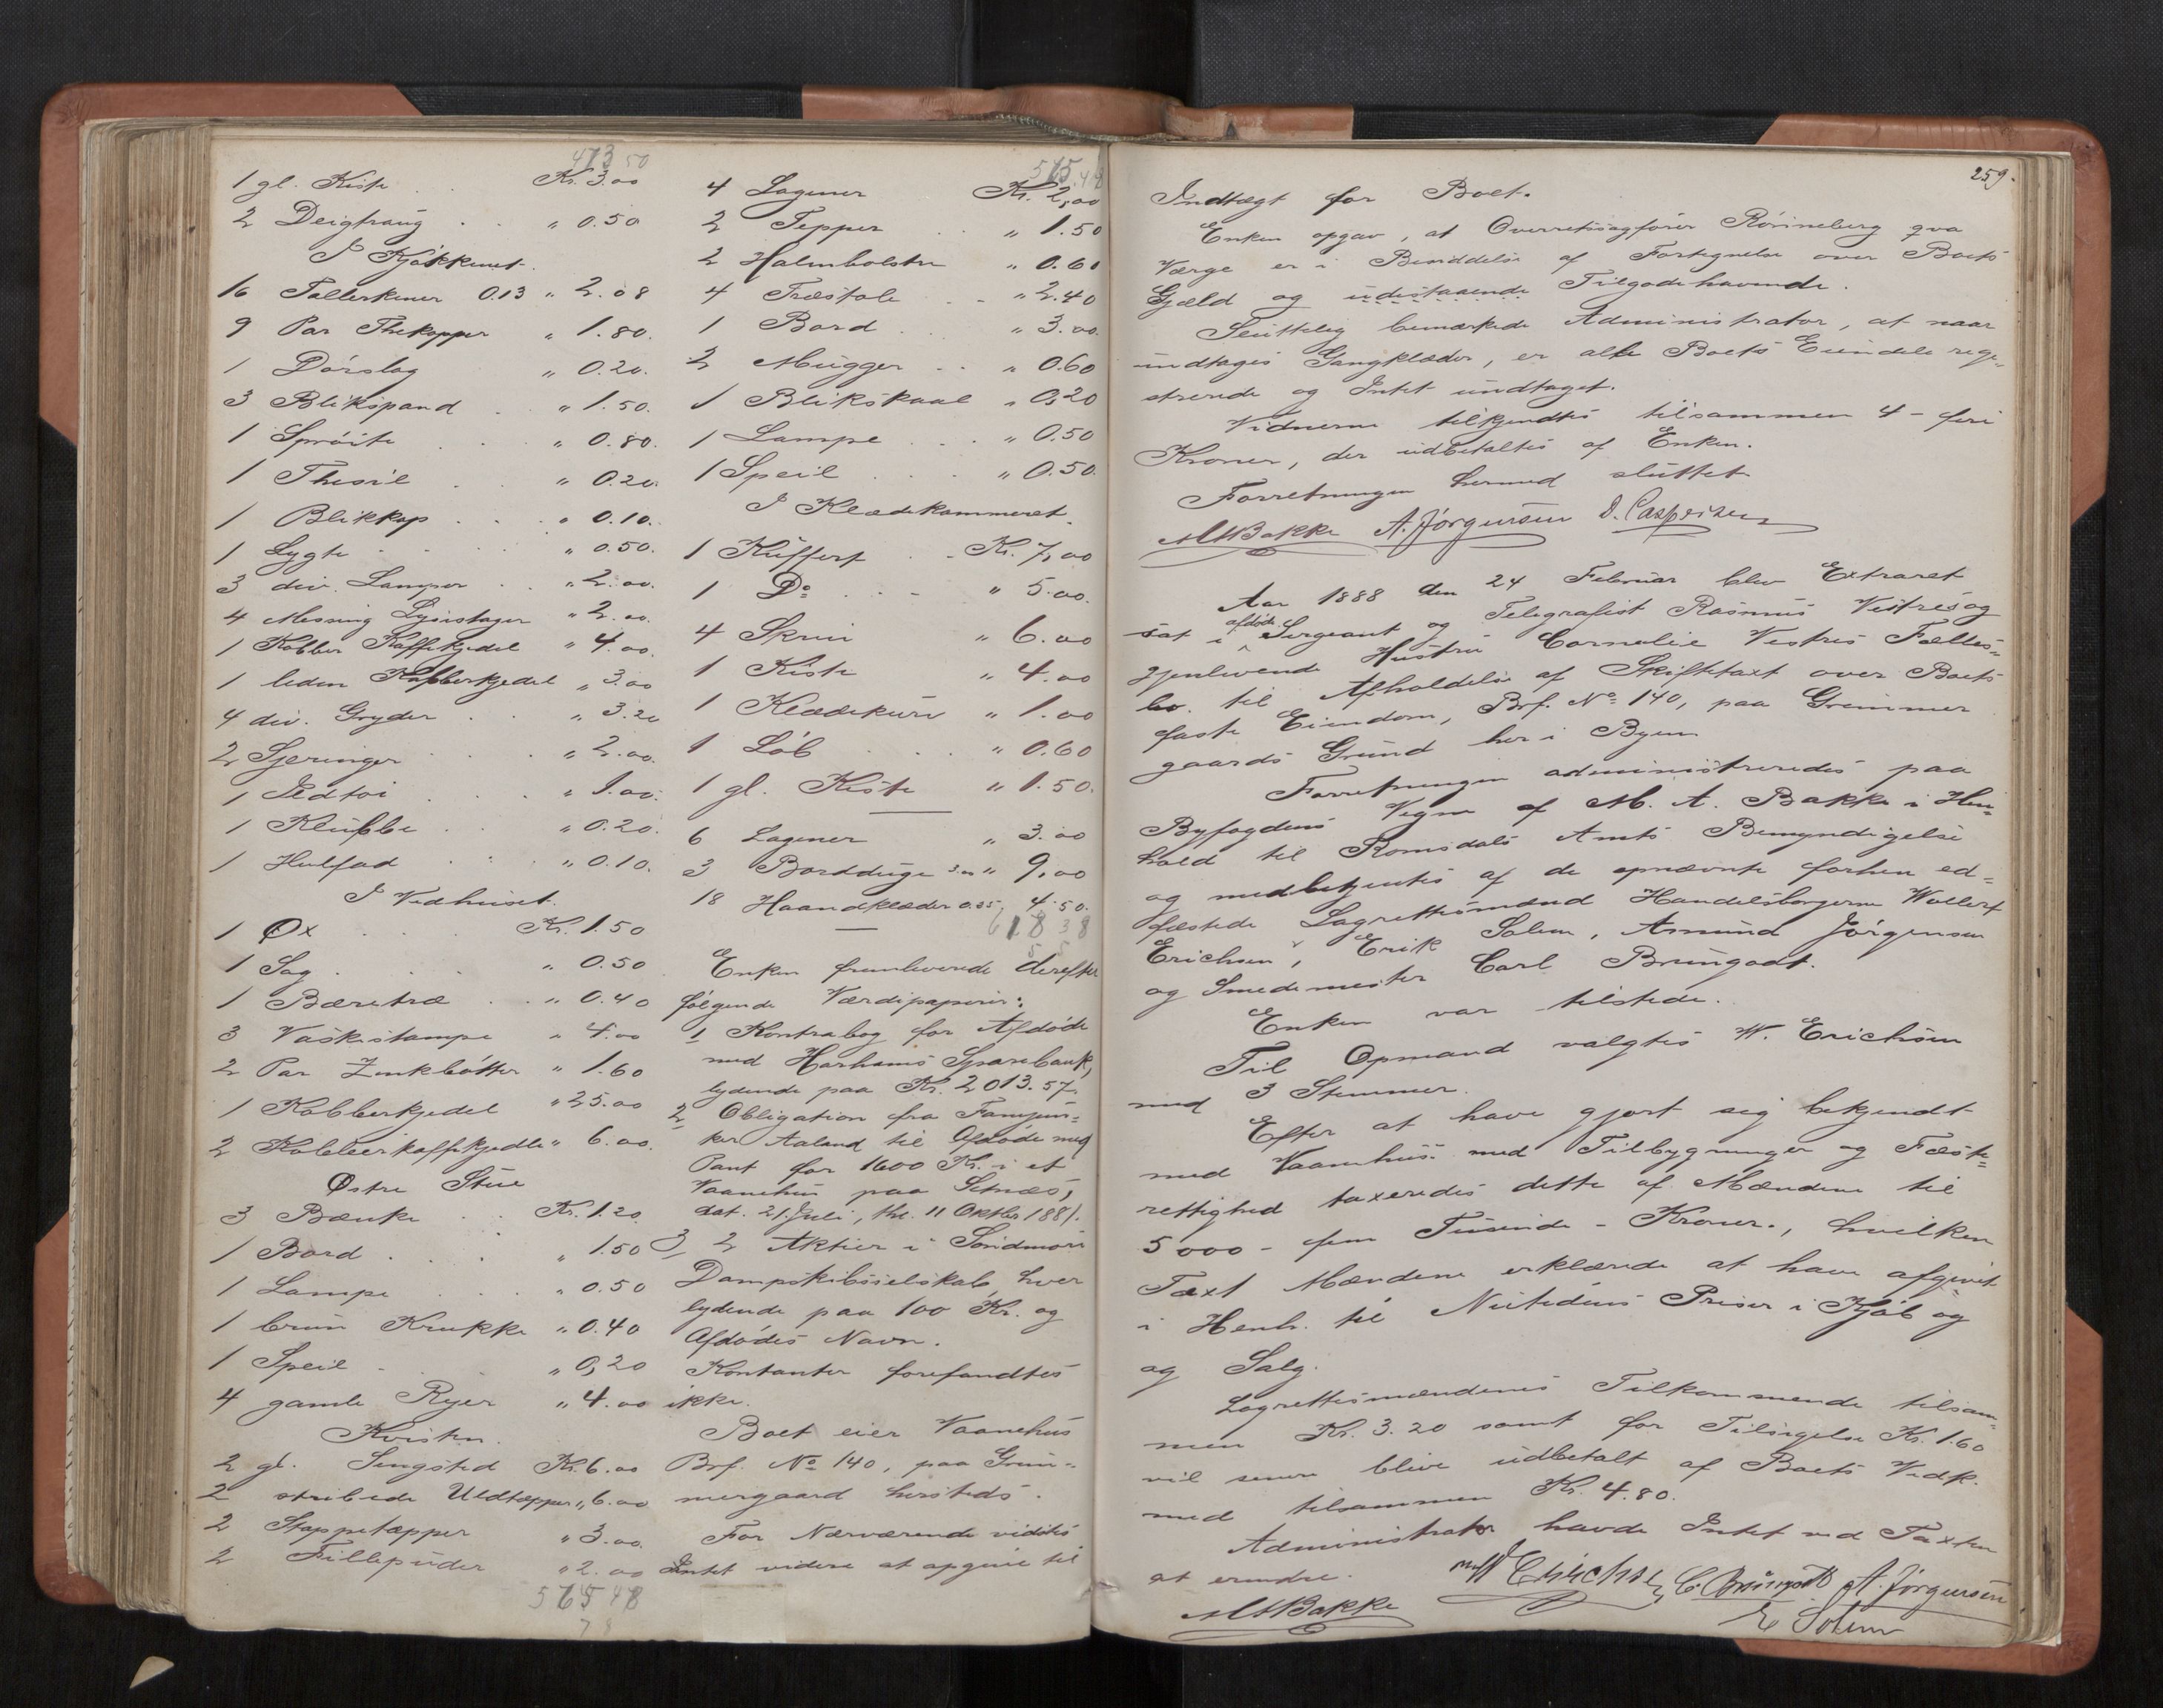 473 50
1 gl. Kiste . . Kr. 3.00
2 Deigtraug . . " 0.50
I Kjøkkenet.
16 Tallerkener 0.13 " 2.08
9 Par Thekopper " 1.80.
1 Dørslag " 0.20.
3 Blikspand . " 1.50.
1 Sprøite . . " 0.80.
1 Thesil . . " 0.20.
1 Blikkop . . . " 0.10.
1 Lygte . . . " 0.50.
3 div. Lamper . . " 2.00.
4 Messing Lysestager " 2.00.
1 Kobber Kaffekjedel " 4.00.
1 liden Kobberkjedel " 3.00
4 div. Gryder . . " 3.20
2 Sjeringer . . . " 2.00.
1 Ildtoi . . . " 1.00.
1 Klubbe . . " 0.20.
1 Hulfad . . . " 0.10.
I Vedhuset.
1 Øx . . . Kr. 1.50
1 Sag . . . " 0.50
1 Bæretræ . . " 0.40
3 Vaskestampe " 4.00
2 Par Zinkbøtter " 1.60
1 Kobberkjedel " 25.00
2 Kobberkaffekjedle " 6.00.
Østre Stue
3 Bænke . . Kr. 1.20.
1 Bord . . . " 1.50
1 Lampe . . . " 0.50
1 brun Krukke " 0.40
1 Speil . . . " 0,20
4 gamle Ryer " 4.00
Kvisten.
2 gl. Sengsted Kr. 6.00
2 stribede Uldtæpper " 6.00
2 Stoppetæpper " 3.00.
2 Fillepuder " 2.00
565 48
4 Lagener Kr. 2,00
2 Tepper . . " 1.50
2 Halmbolstre " 0.60
4 Træstole . . " 2.40
1 Bord . . " 3.00.
2 Mugger . . " 0.60
1 Blikskaal " 0,20
1 Lampe . . . " 0.50
1 Speil . . . " 0.50.
I Klædekammeret.
1 Kuffert . . Kr. 7,00
1 Do . . . " 5.00.
4 Skrin " 6.00
1 Kiste " 4.00
1 Klædekurv " 1.00
1 Løb . . . " 0.60
1 gl. Kiste " 1.50.
6 Lagener " 3.00
3 Bordduge 3.00 " 9,00
18 Haandklæder 0.25 " 4.50.
618 38
Enken fremleverede derefter
følgende Værdipapirer:
1 Kontrabog for Afdøde
med Harhams Sparebank,
lydende paa Kr. 2013.57.
2 Obligation fra Fanejun-
ker Aaland til Afdøde med
Pant for 1600 Kr. i et
Vaanehus paa Setnæs,
dat. 21. Juli, thl. 11 Oktbr 1881.
3 2 Aktier i Søndmøre
Dampskibsselskab, hver
lydende paa 100 Kr. og
Afdødes Navn.
Kontanter forefandtes
ikke.
Boet eier Vaanehus
Brf. No 140, paa Grim-
mergaard hersteds.
For Nærværende vidstes
Intet videre at opgive til
259.
Indtægt for Boet.
Enken opgav, at Overretssagfører Rønneberg qva
Værge er i Besiddelse af Fortegnelse over Boets
Gjæld og udestaaende Tilgodehavende.
Sluttelig bemærkede Administrator, at naar
undtages Gangklæder, er alle Boets Eiendele regi-
strerede og Intet undtaget.
Vidnerne tilkjendtes tilsammen 4 - fire
Kroner, der udbetaltes af Enken.
Forretningen hermed sluttet
MABakke A. Jørgensen D. Caspersen
Aar 1888 den 24 Februar blev Extraret
sat i afdøde Sergeant og Telegrafist Rasmus Vestres og
gjenlevende Hustru Cornelie Vestres Fælles-
bo. til Afholdelse af Skiftetaxt over Boets
faste Eiendom, Brf. No 140, paa Grimmer
gaards Grund her i Byen
Forretningen administreredes paa
Byfogdens Vegne af M. A. Bakke i Hen-
hold til Romsdals Amts Bemyndigelse
og medbetjentes af de opnævnte forhen ed-
fæstede Lagrettesmænd Handelsborgerne Wollert
Erichsen, Erik Solem, Asmund Jørgensen
og Smedemester Carl Brungodt.
Enken var tilstede.
Til Opmand valgtes W. Erichsen
med 3 Stemmer.
Efter at have gjort sig bekjendt
med Vaanehus med Tilbygninger og Fæste-
rettighed taxeredes dette af Mændene til
5000 - fem Tusinde - Kroner., hvilken
Taxt Mændene erklærede at have afgivet
i Henh. til Nutidens Priser i Kjøb og
og Salg.
Lagrettesmændenes Tilkommende tilsam-
men Kr. 3.20 samt for Tilsigelse Kr. 1.60
vil senere blive udbetalt af Boets Vedk.
med tilsammen Kr. 4.80.
Administrator havde Intet ved Taxten
at erindre.
MABakke W Erichsen C. Brungodt A. Jørgensen
E Solem